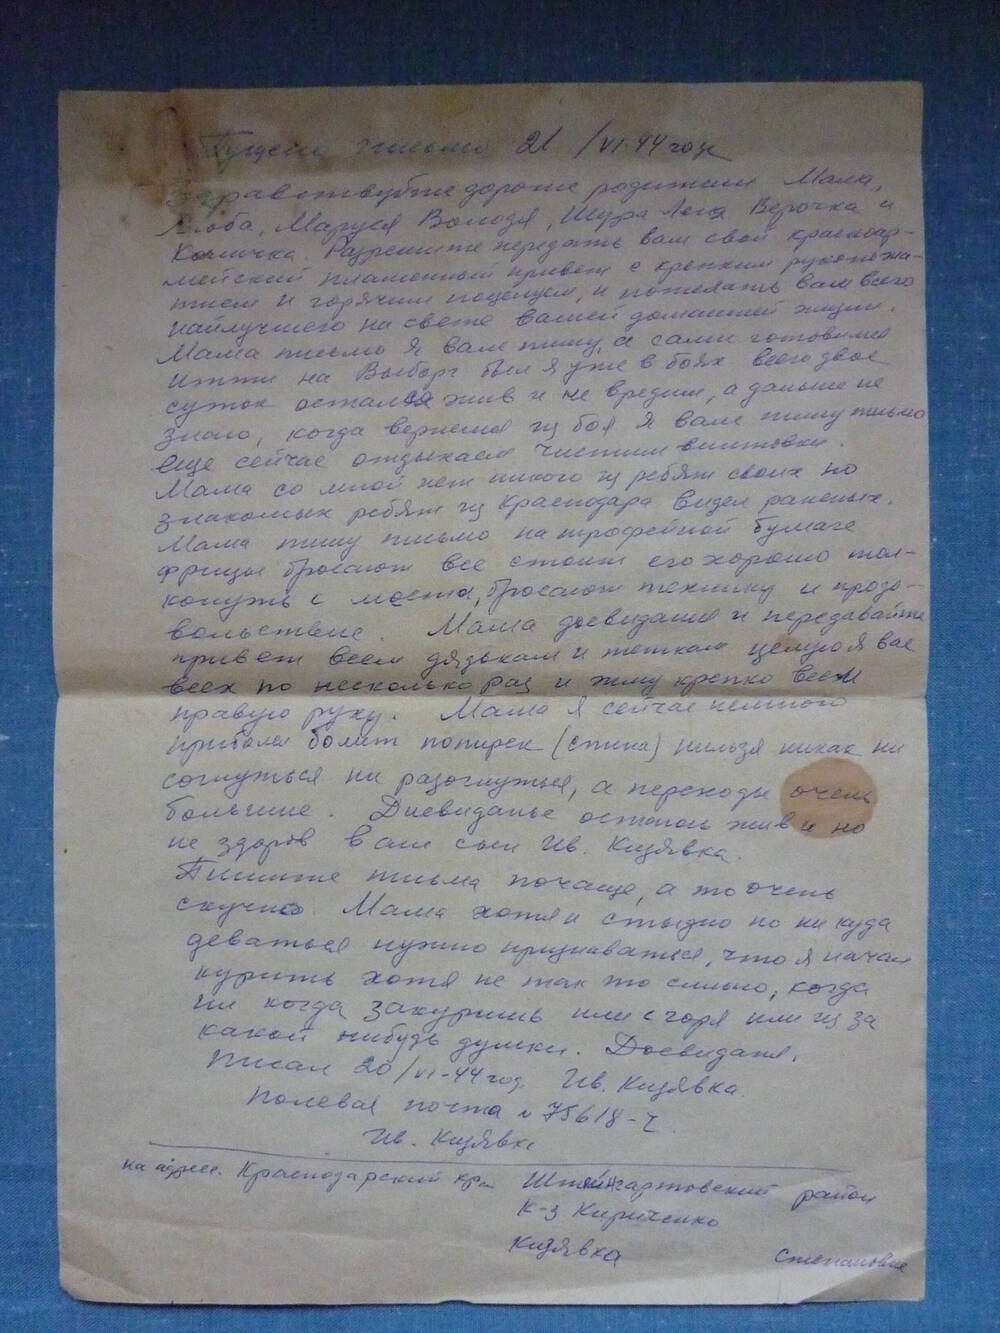 Пущено письмо 21/VI-44 года
Здравствуйте дорогие родители Мама,
Люба, Маруся Володя, Шура Леня Верочка и
Количка. Разрешите передать вам свой красноар-
мейский пламенный привет с крепким рукопожа-
тием и горячим поцелуем, и пожелать вам всего
найлучшего на свете вашей домашней жизни.
Мама письмо я вам пишу, а сами готовимся
итти на Выборг был я уже в боях всего двое
суток остался жив и не вредим, а дальше не
знаю, когда вернемся из боя я вам пишу письмо
еще сейчас отдыхаем чистим винтовки.
Мама со мной нет никого из ребят своих но
знакомых ребят из Краснодара видел раненых.
Мама пишу письмо на трофейной бумаге
фрицы бросают все стоит его хорошо тол-
конуть с места, бросают технику и продо-
вольствие. Мама досвидания и передавайте
привет всем дядькам и теткам целую я вас
всех по несколько раз и жму крепко всем
правую руку. Мама я сейчас немного
прибалел болит попирек (спина) нильзя никак ни
согнуться ни разогнуться, а переходы очень
большие. Досвиданье остаюсь жив и но
не здоров ваш сын Ив. Кизявка.
Пишите письма почаще, а то очень
скучно. Мама хотя и стыдно но ни куда
деваться нужно признаваться, что я начал
курить хотя не так то сильно, когда
ни когда закуришь или с горя или из за
какой нибудь думки. Досвиданя.
Писал 20/VI-44 год Ив. Кизявка.
Полевая почта № 75618-Ч.
Ив. Кизявка
на адрес. Краснодарский край Штейнгартовский район
К-з Кириченко
Кизявка Степановне